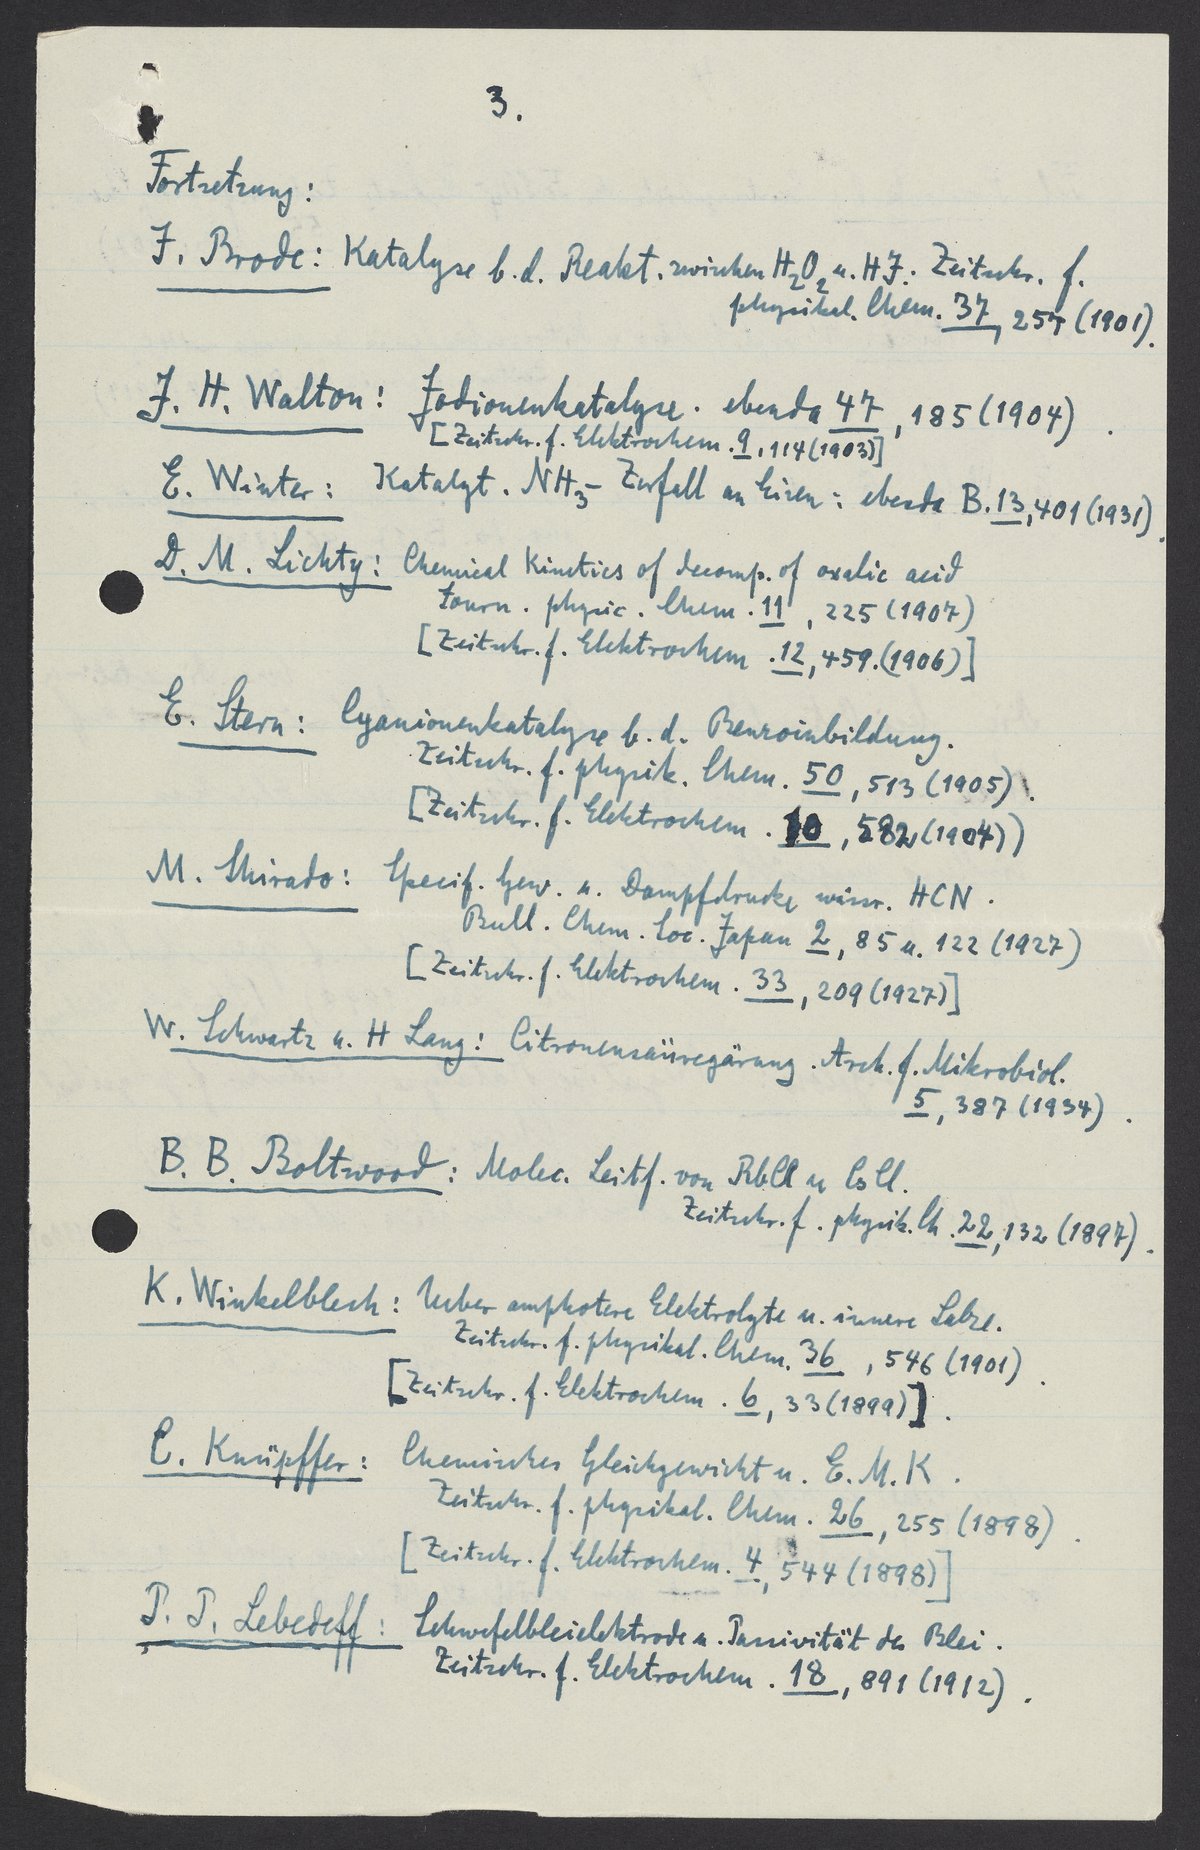 3.
Fortsetzung:
J. Brode: Katalyse b. d. Reakt. zwischen H2O2 u. HJ. Zeitschr. f.
physikal. Chem. 37, 257 (1901).
J. H. Walton: Jodionenkatalyse. ebenda 47, 185 (1904).
[Zeitschr. f. Elektrochem. 9, 114 (1903)]
E. Winter: Katalyt. NH3-Zerfall an Eisen: ebenda B. 13, 401 (1931).
D. M. Lichty: Chemical Kinetics of decomp. of oxalic acid
Journ. physic. Chem. 11, 225 (1907)
[Zeitschr. f. Elektrochem. 12, 459. (1906)]
E. Stern: Cyanionenkatalyse b. d. Benzoinbildung.
Zeitschr. f. physik. Chem. 50, 513 (1905).
[Zeitschr. f. Elektrochem. 10, 582 (1904))
M. Shirado: Specif. Gew. u. Dampfdrucke wässr. HCN.
Bull. Chem. Soc. Japan 2, 85 u. 122 (1927)
[Zeitschr. f. Elektrochem. 33, 209 (1927)]
W. Schwartz u. H Lang: Citronensäuregärung. Arch. f. Mikrobiol.
5, 387 (1934).
B. B. Boltwood: Molec. Leitf. von RbCl u CsCl.
Zeitschr. f. physik. Ch. 22, 132 (1897).
K. Winkelblech: Ueber amphotere Elektrolyte u. innere Salze.
Zeitschr. f. physikal. Chem. 36, 546 (1901).
[Zeitschr. f. Elektrochem. 6, 33 (1899)].
C. Knüpffer: Chemisches Gleichgewicht u. E. M. K.
Zeitschr. f. physikal. Chem. 26, 255 (1898).
[Zeitschr. f. Elektrochem. 4, 544 (1898)]
P. P. Lebedeff: Schwefelbleielektrode u. Passivität des Blei.
Zeitschr. f. Elektrochem. 18, 891 (1912).